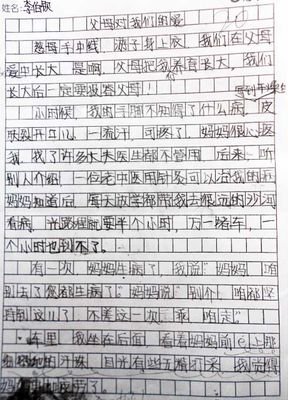 姓名:李伯欣
父母对我们的爱
慈母手中线,游子身上衣,我们在父母
爱中长大,是啊,父母把我养育长大,我们
长大后一定要报答父母!
小时候,我的手脚不知得了什么病,皮
肤裂开口儿,一流汗,可疼了,妈妈很心疼
我,找了许多大夫医生都不管用,后来,听
别人介绍,一位老中医用针灸可以治我的
妈妈知道后,每天放学都带我去很远的沙河
看病,光路程就要半个小时,万一堵车,一
个小时也到不了。
有一次,妈妈生病了,我说“妈妈,咱
别去了您都生病了。”妈妈说“别介,咱都坚
持到这儿了,不差这一次,乖,咱去。”
车里,我坐在后面,看着妈妈前
的汗珠,目光有些无精打采,我觉得
妈妈